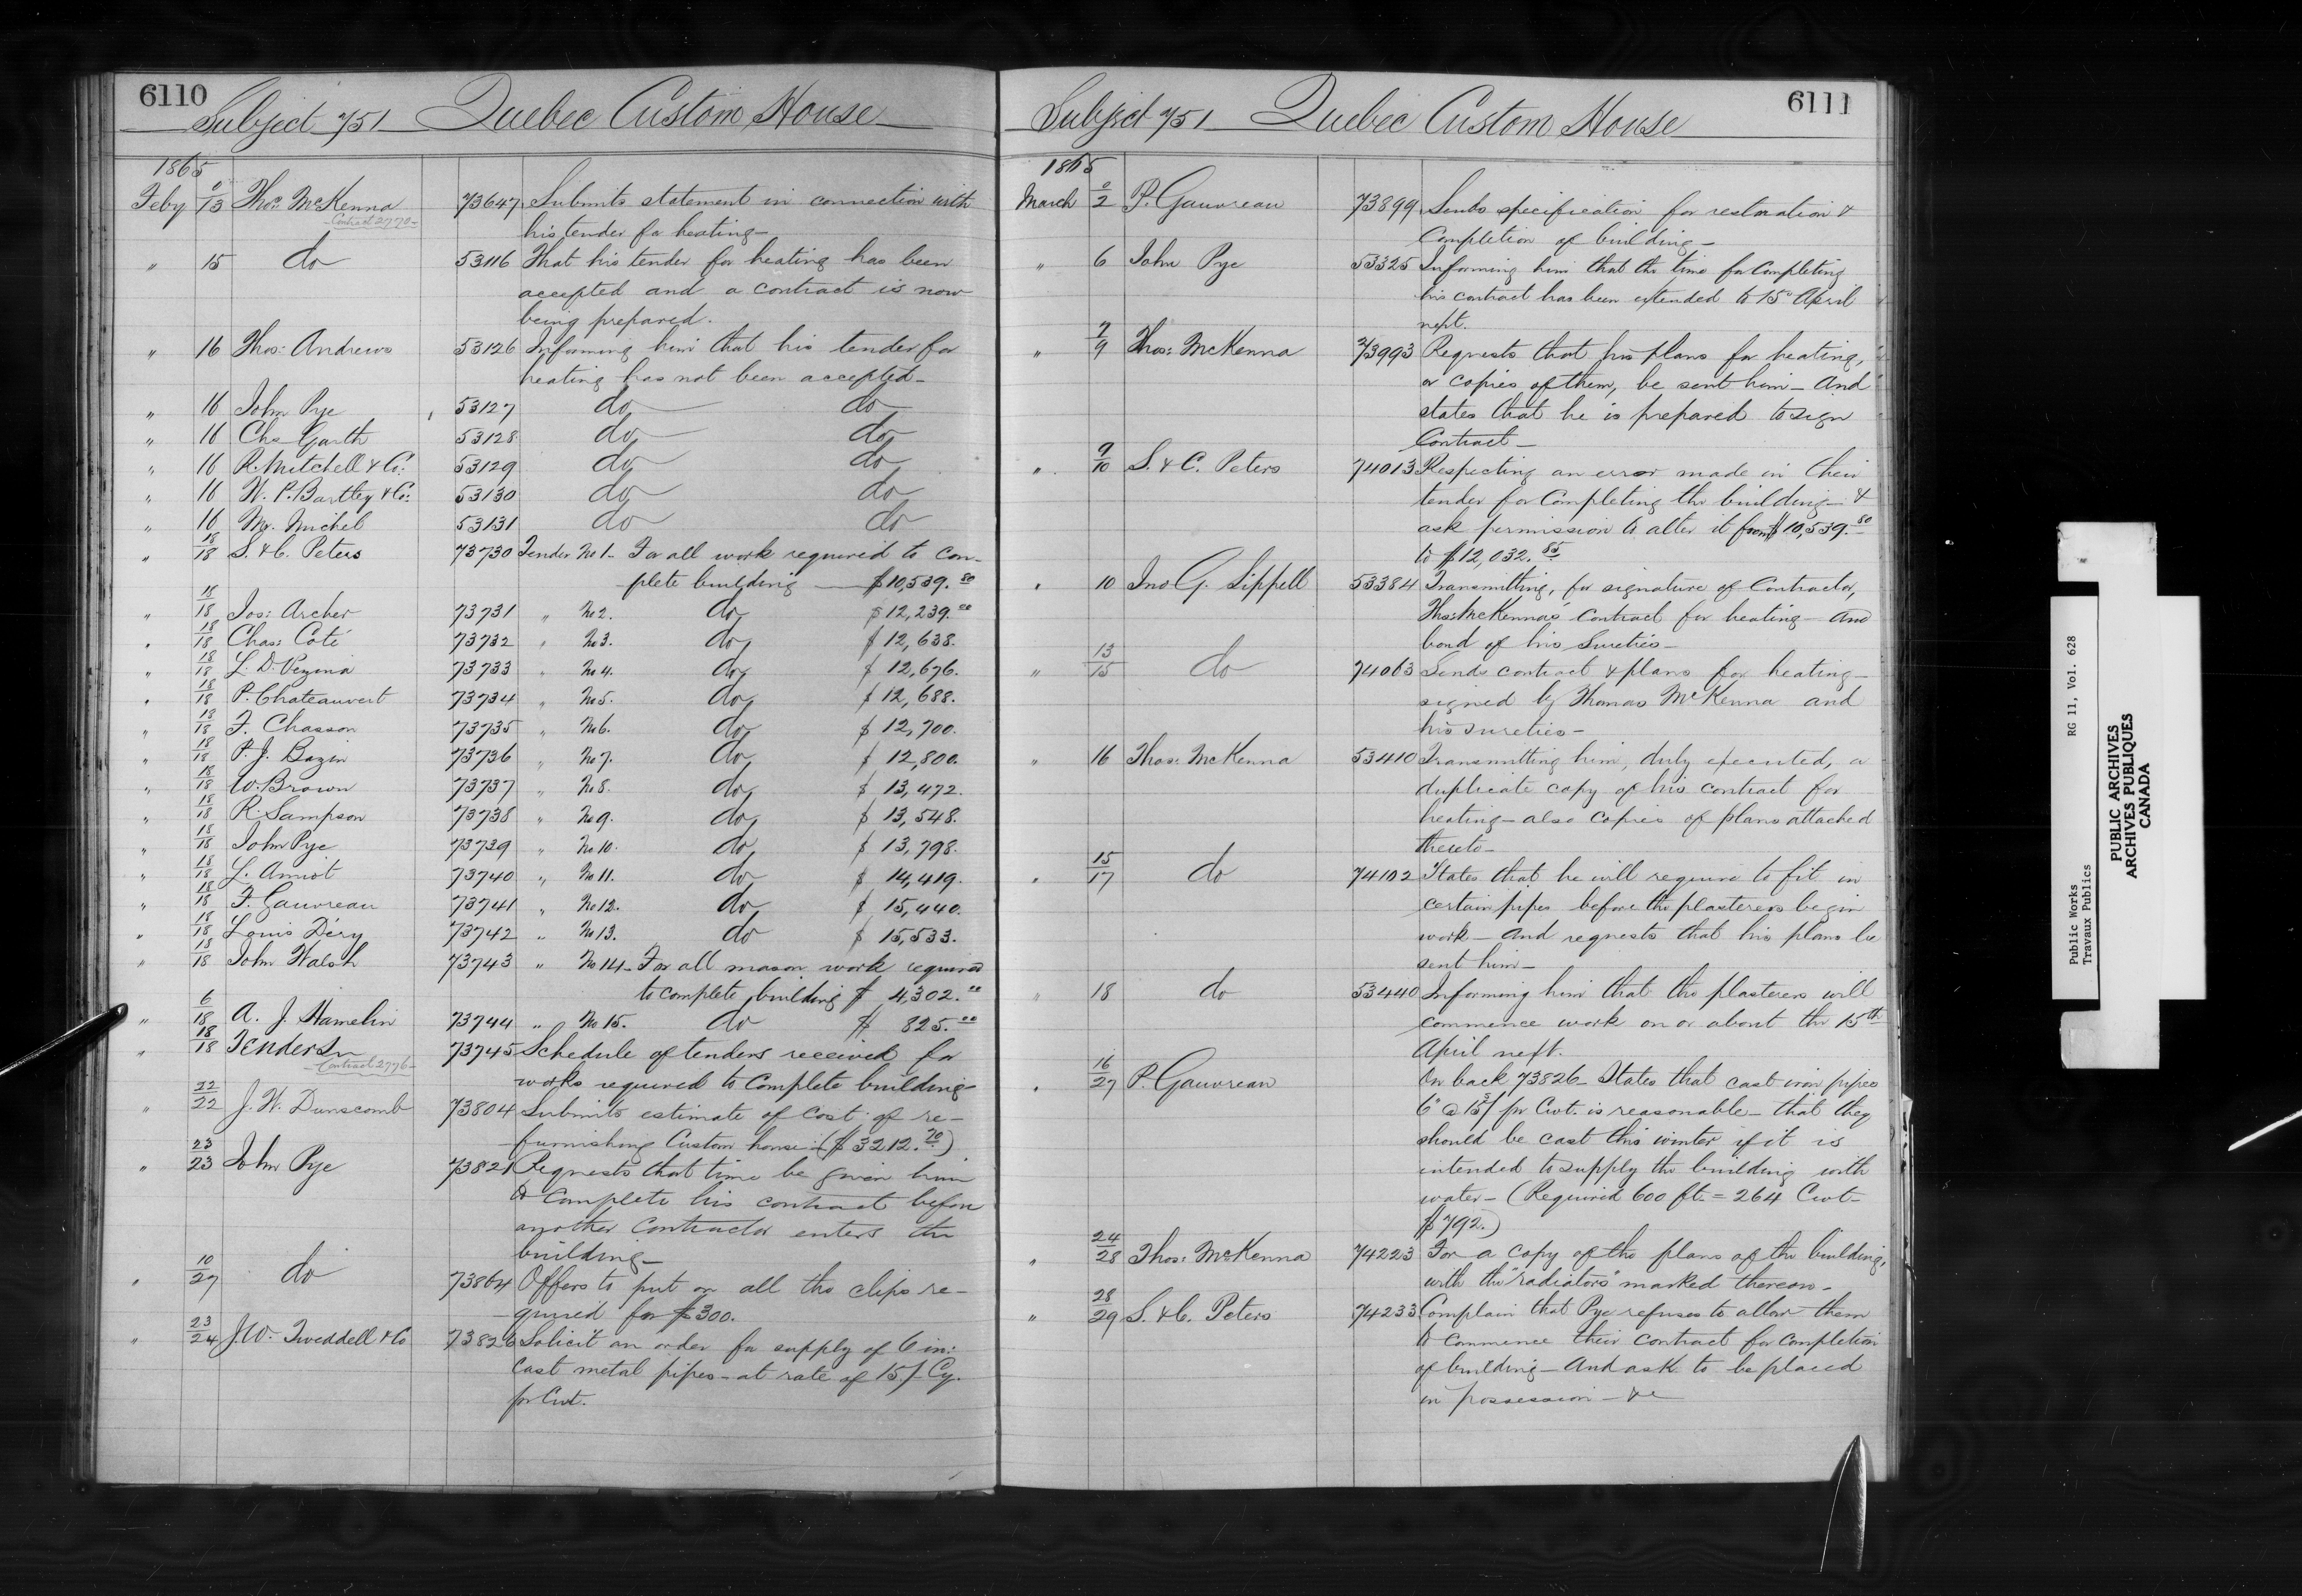 6110
Subject 751 Quebec Custom House
1865
Feby 0/13 Thos. McKenna 73647 Submits statement in connection with
Contract 2770
his tender for heating—
" 15 do 53116 That his tender for heating has been
accepted and a contract is now
being prepared.
" 16 Thos: Andrews 53126 Informing him that his tender for
heating has not been accepted—
" 16 John Pye 53127 do do
" 16 Chs Garth 53128 do do
" 16 R. Mitchell & Co: 53129 do do
" 16 W. P. Bartley & Co: 53130 do do
" 16 Mr. Michel 53131 do do
" 18/18 S. & C. Peters 73730 Tender No 1— For all work required to com-
plete building — $10,539.80
" 18/18 Jos: Archer 73731 " No 2. do $12,239.00
" 18/18 Chas: Coté 73732 " No 3. do $12,638.
" 18/18 L. D. Vezina 73733 " No 4. do $12,676.
" 18/18 P. Chateauvert 73734 " No 5. do $12,688.
" 18/18 F. Chasson 73735 " No 6. do $12,700.
" 18/18 P. J. Bazin 73736 " No 7. do $12,800.
" 18/18 W. Brown 73737 " No 8. do $13,472.
" 18/18 R. Sampson 73738 " No 9. do $13,548.
" 18/18 John Pye 73739 " No 10. do $13,798.
" 18/18 L. Amiot 73740 " No 11. do $14,419.
" 18/18 F. Gauvreau 73741 " No 12. do $15,440.
" 18/18 Louis Déry 73742 " No 13. do $15,533.
" 18/18 John Walsh 73743 " No 14— For all mason work required
to complete building $4,302.00
" 6/18 A. J. Hamelin 73744 " No 15. do $825.00
" 18/18 Tenders 73745 Schedule of tenders received for
Contract 2776
works required to complete building—
" 22/22 J. W. Dunscomb 73804 Submits estimate of cost of re-
furnishing Custom house— ($3212.70)
" 23/23 John Pye 73821 Requests that time be given him
to complete his contract before
another contractor enters the
building—
" 10/27 do 73864 Offers to put on all the clips re-
quired for $300.
" 23/24 J. W. Tweddell & Co 73826 Solicit an order for supply of 6 in:
cast metal pipes— at rate of 15/ Cy.
pr Cwt.
6111
Subject 751 Quebec Custom House
1865
March 2/2 P. Gauvreau 73899 Sends specification for restoration &
completion of building—
" 6 John Pye 53325 Informing him that the time for completing
his contract has been extended to 15th April
next.
" 7/9 Thos: McKenna 73993 Requests that his plans for heating,
or copies of them, be sent him— And
states that he is prepared to sign
Contract—
" 9/10 S. & C. Peters 74013 Respecting an error made in their
tender for completing the building— &
ask permission to alter it from $10,539.80
to $12,032.85
" 10 Jno G. Sippell 53384 Transmitting, for signature of Contractor,
Thos: McKenna's contract for heating— And
bond of his Sureties—
" 13/15 do 74063 Sends contract & plans for heating—
signed by Thomas McKenna and
his sureties—
" 16 Thos: McKenna 53410 Transmitting him, duly executed, a
duplicate copy of his contract for
heating— also copies of plans attached
thereto—
" 15/17 do 74102 States that he will require to fit in
certain pipes before the plasterers begin
work— And requests that his plans be
sent him—
" 18 do 53440 Informing him that the plasterers will
commence work on or about the 15th
April next.
" 16/27 P. Gauvreau On back 73826— States that cast iron pipes
6" @ 15/ pr Cwt. is reasonable— that they
should be cast this winter if it is
intended to supply the building with
water— (Required 600 ft. = 264 Cwt—
$792.)
" 24/28 Thos: McKenna 74223 For a copy of the plans of the building,
with the "radiators" marked thereon.
" 28/29 S. & C. Peters 74233 Complain that Pye refuses to allow them
to commence their contract for completion
of building— And ask to be placed
in possession— &c
Public Works RG 11, Vol. 628
Travaux Publics
PUBLIC ARCHIVES
ARCHIVES PUBLIQUES
CANADA